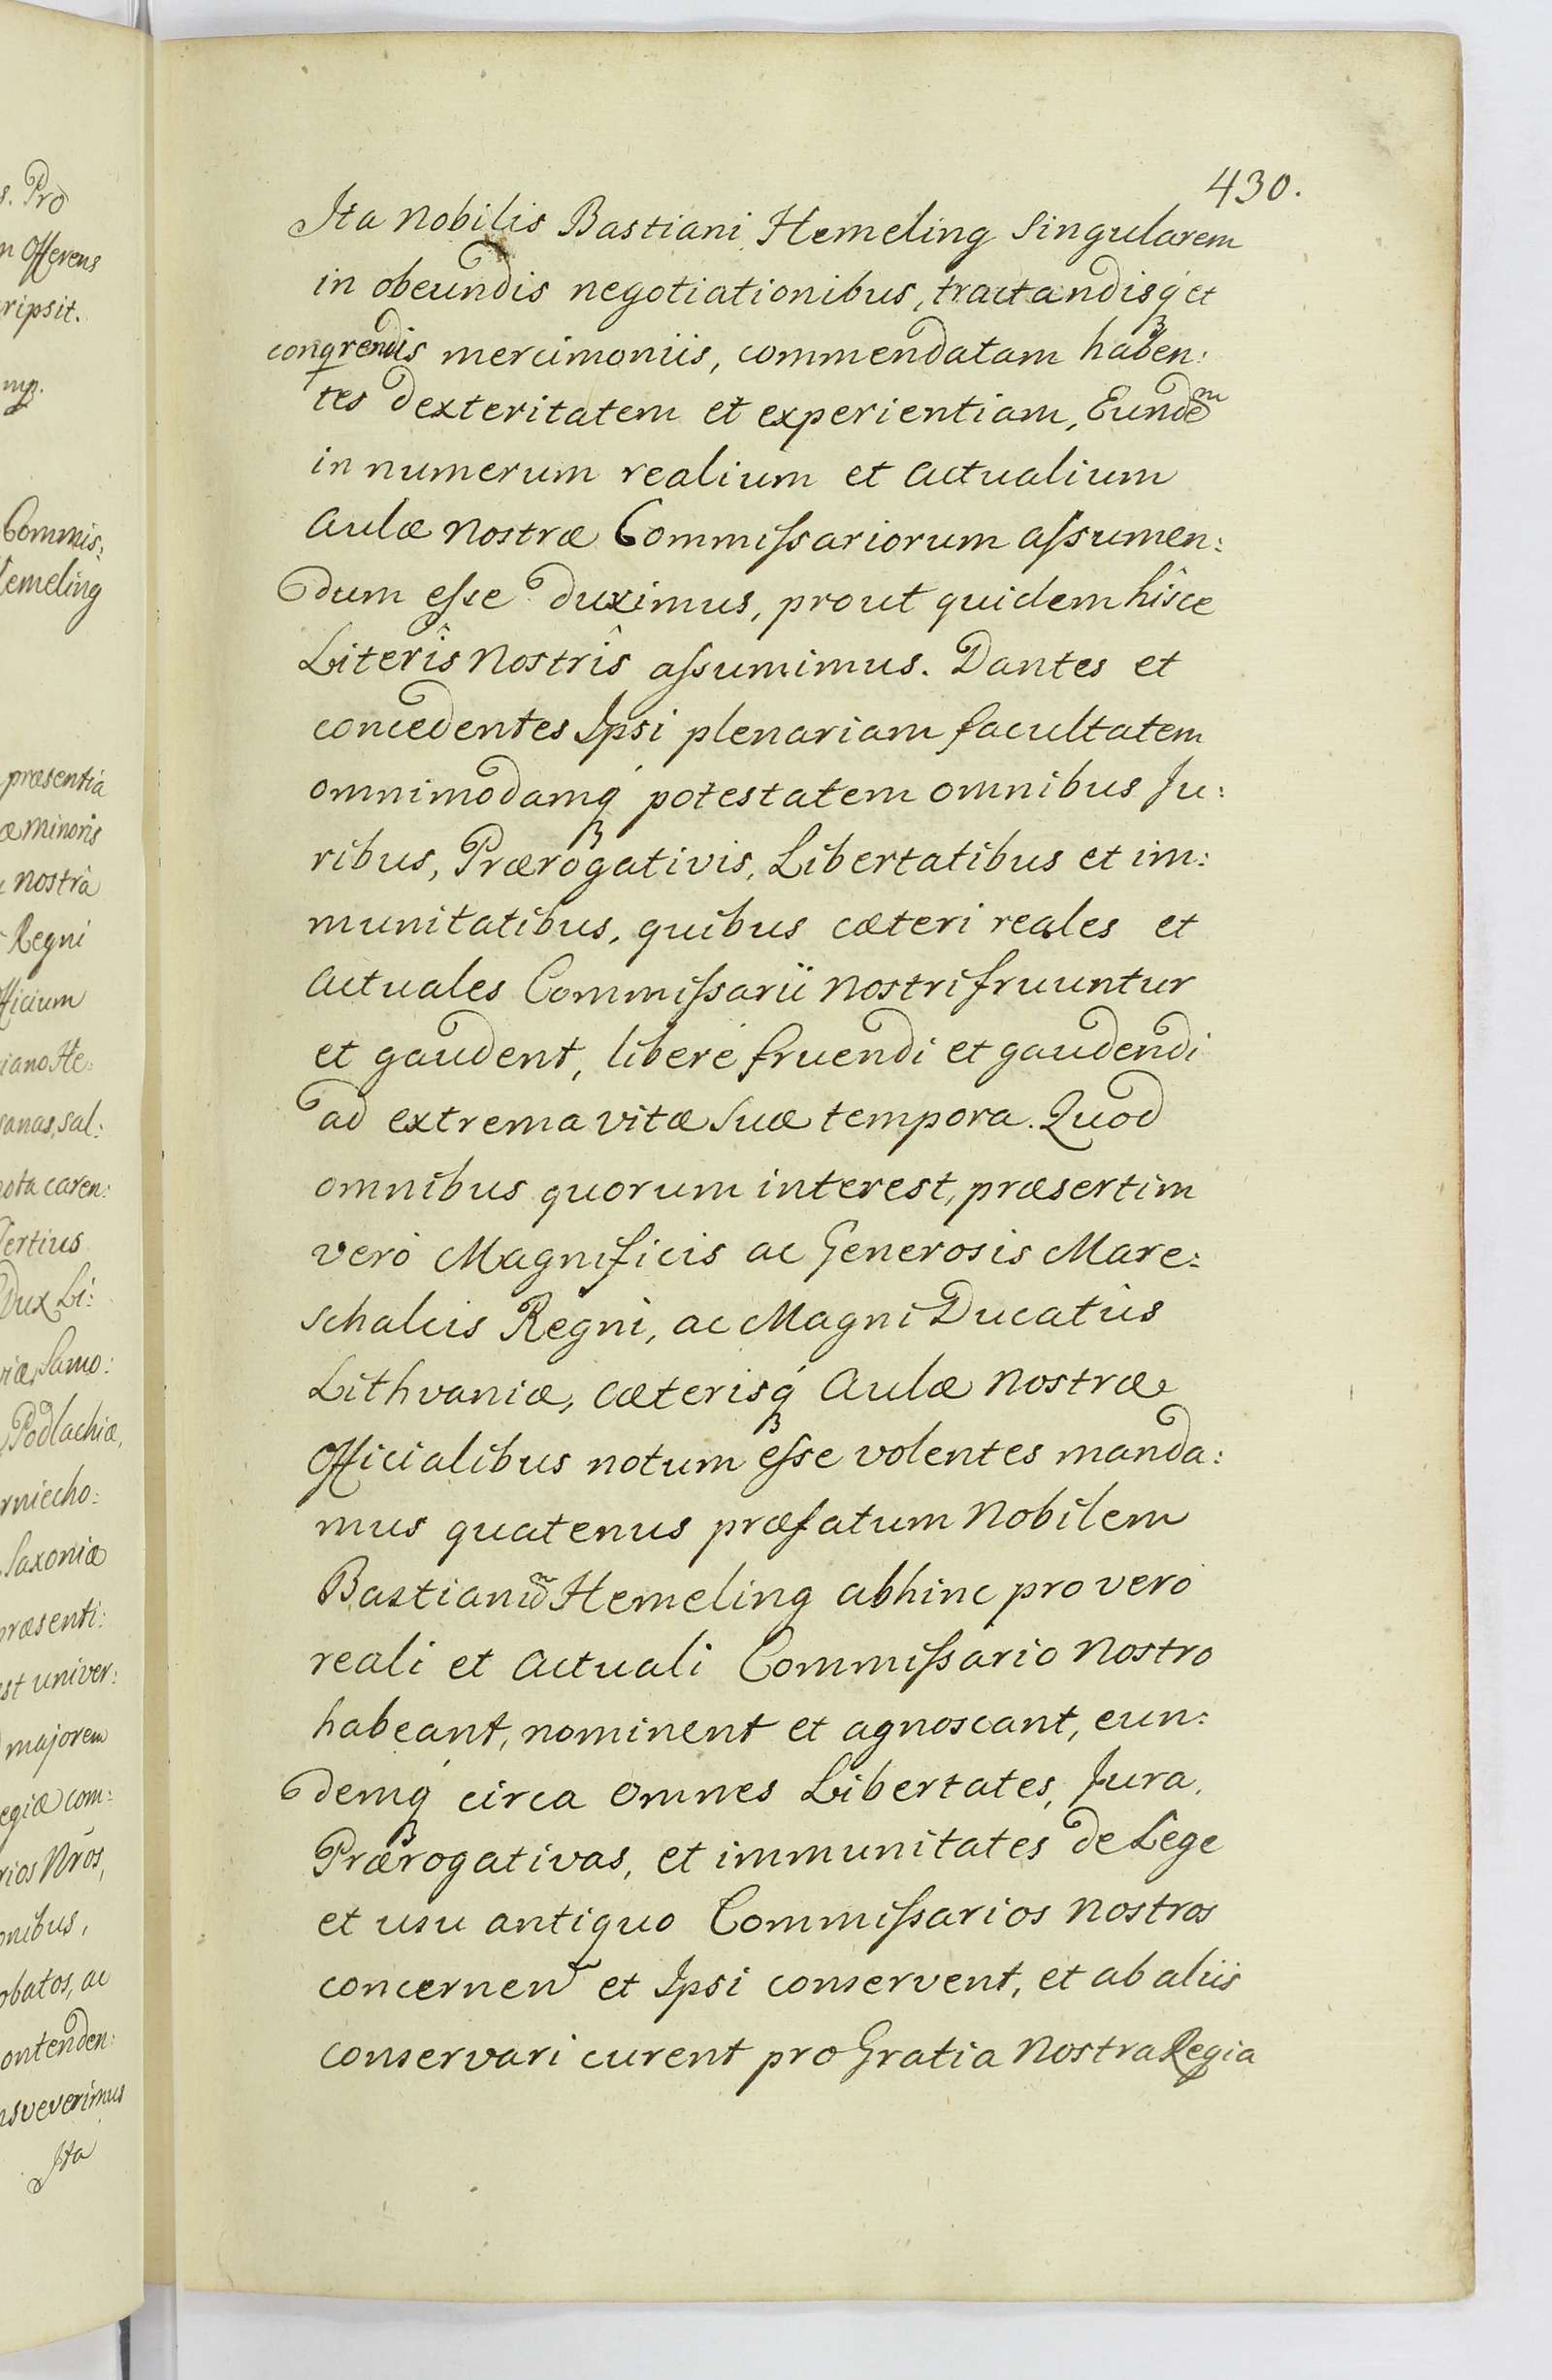 430.
Ita Nobilis Bastiani Hemeling Singularem
in obeundis negotiationibus, tractandisq́ꝫ et
mercimoniis, commendatam haben:
tes dexteritatem et experientiam, Eundeᵐ
in numerum realium et Actualium
Aulæ Nostræ Commiſsariorum aſsumen:
dum eſse duximus, prout quidem hîsce
Literîs Nostrîs aſsumimus. Dantes et
concedentes Ipsi plenariam facultatem
omnimodamq́ꝫ potestatem omnibus Ju:
ribus, Prærogativis, Libertatibus et im:
munitatibus, quibus cæteri reales et
Actuales Commiſsarii Nostri fruuntur
et gaudent, liberè fruendi et gaudendi
ad extrema vitæ Suæ tempora. Quod
omnibus quorum interest, præsertim
verò Magnificis ac Generosis Mare:
schalcis Regni, ac Magni Ducatûs
Lithvaniæ, cæterisq́ꝫ Aulæ Nostræ
Officialibus notum eſse volentes manda:
mus quatenus præfatum Nobilem
Bastianū Hemeling abhinc pro vero
reali et Actuali Commiſsario Nostro
habeant, nominent et agnoscant, eun:
demq́ꝫ circa omnes Libertates, Jura,
Prærogativas, et immunitates de Lege
et usu antiquo Commiſsarios Nostros
concernen̄ et Ipsi conservent, et ab aliis
conservari curent pro Gratia Nostra Regia
s. Pro
n Offerens
ripsit.
mp.
Commis:
emeling
præsentia
æ Minoris
Nostra
Regni
fficium
iano He:
sanas, sal:
nota caren:
Tertius
Dux Li:
riæ, Samo:
Podlachiæ,
rniecho:
Saxoniæ
præsenti:
st univer:
majorem
egiæ com:
rios Nrōs,
onibus,
obatos, ac
ontenden:
nsveverimus
Ita